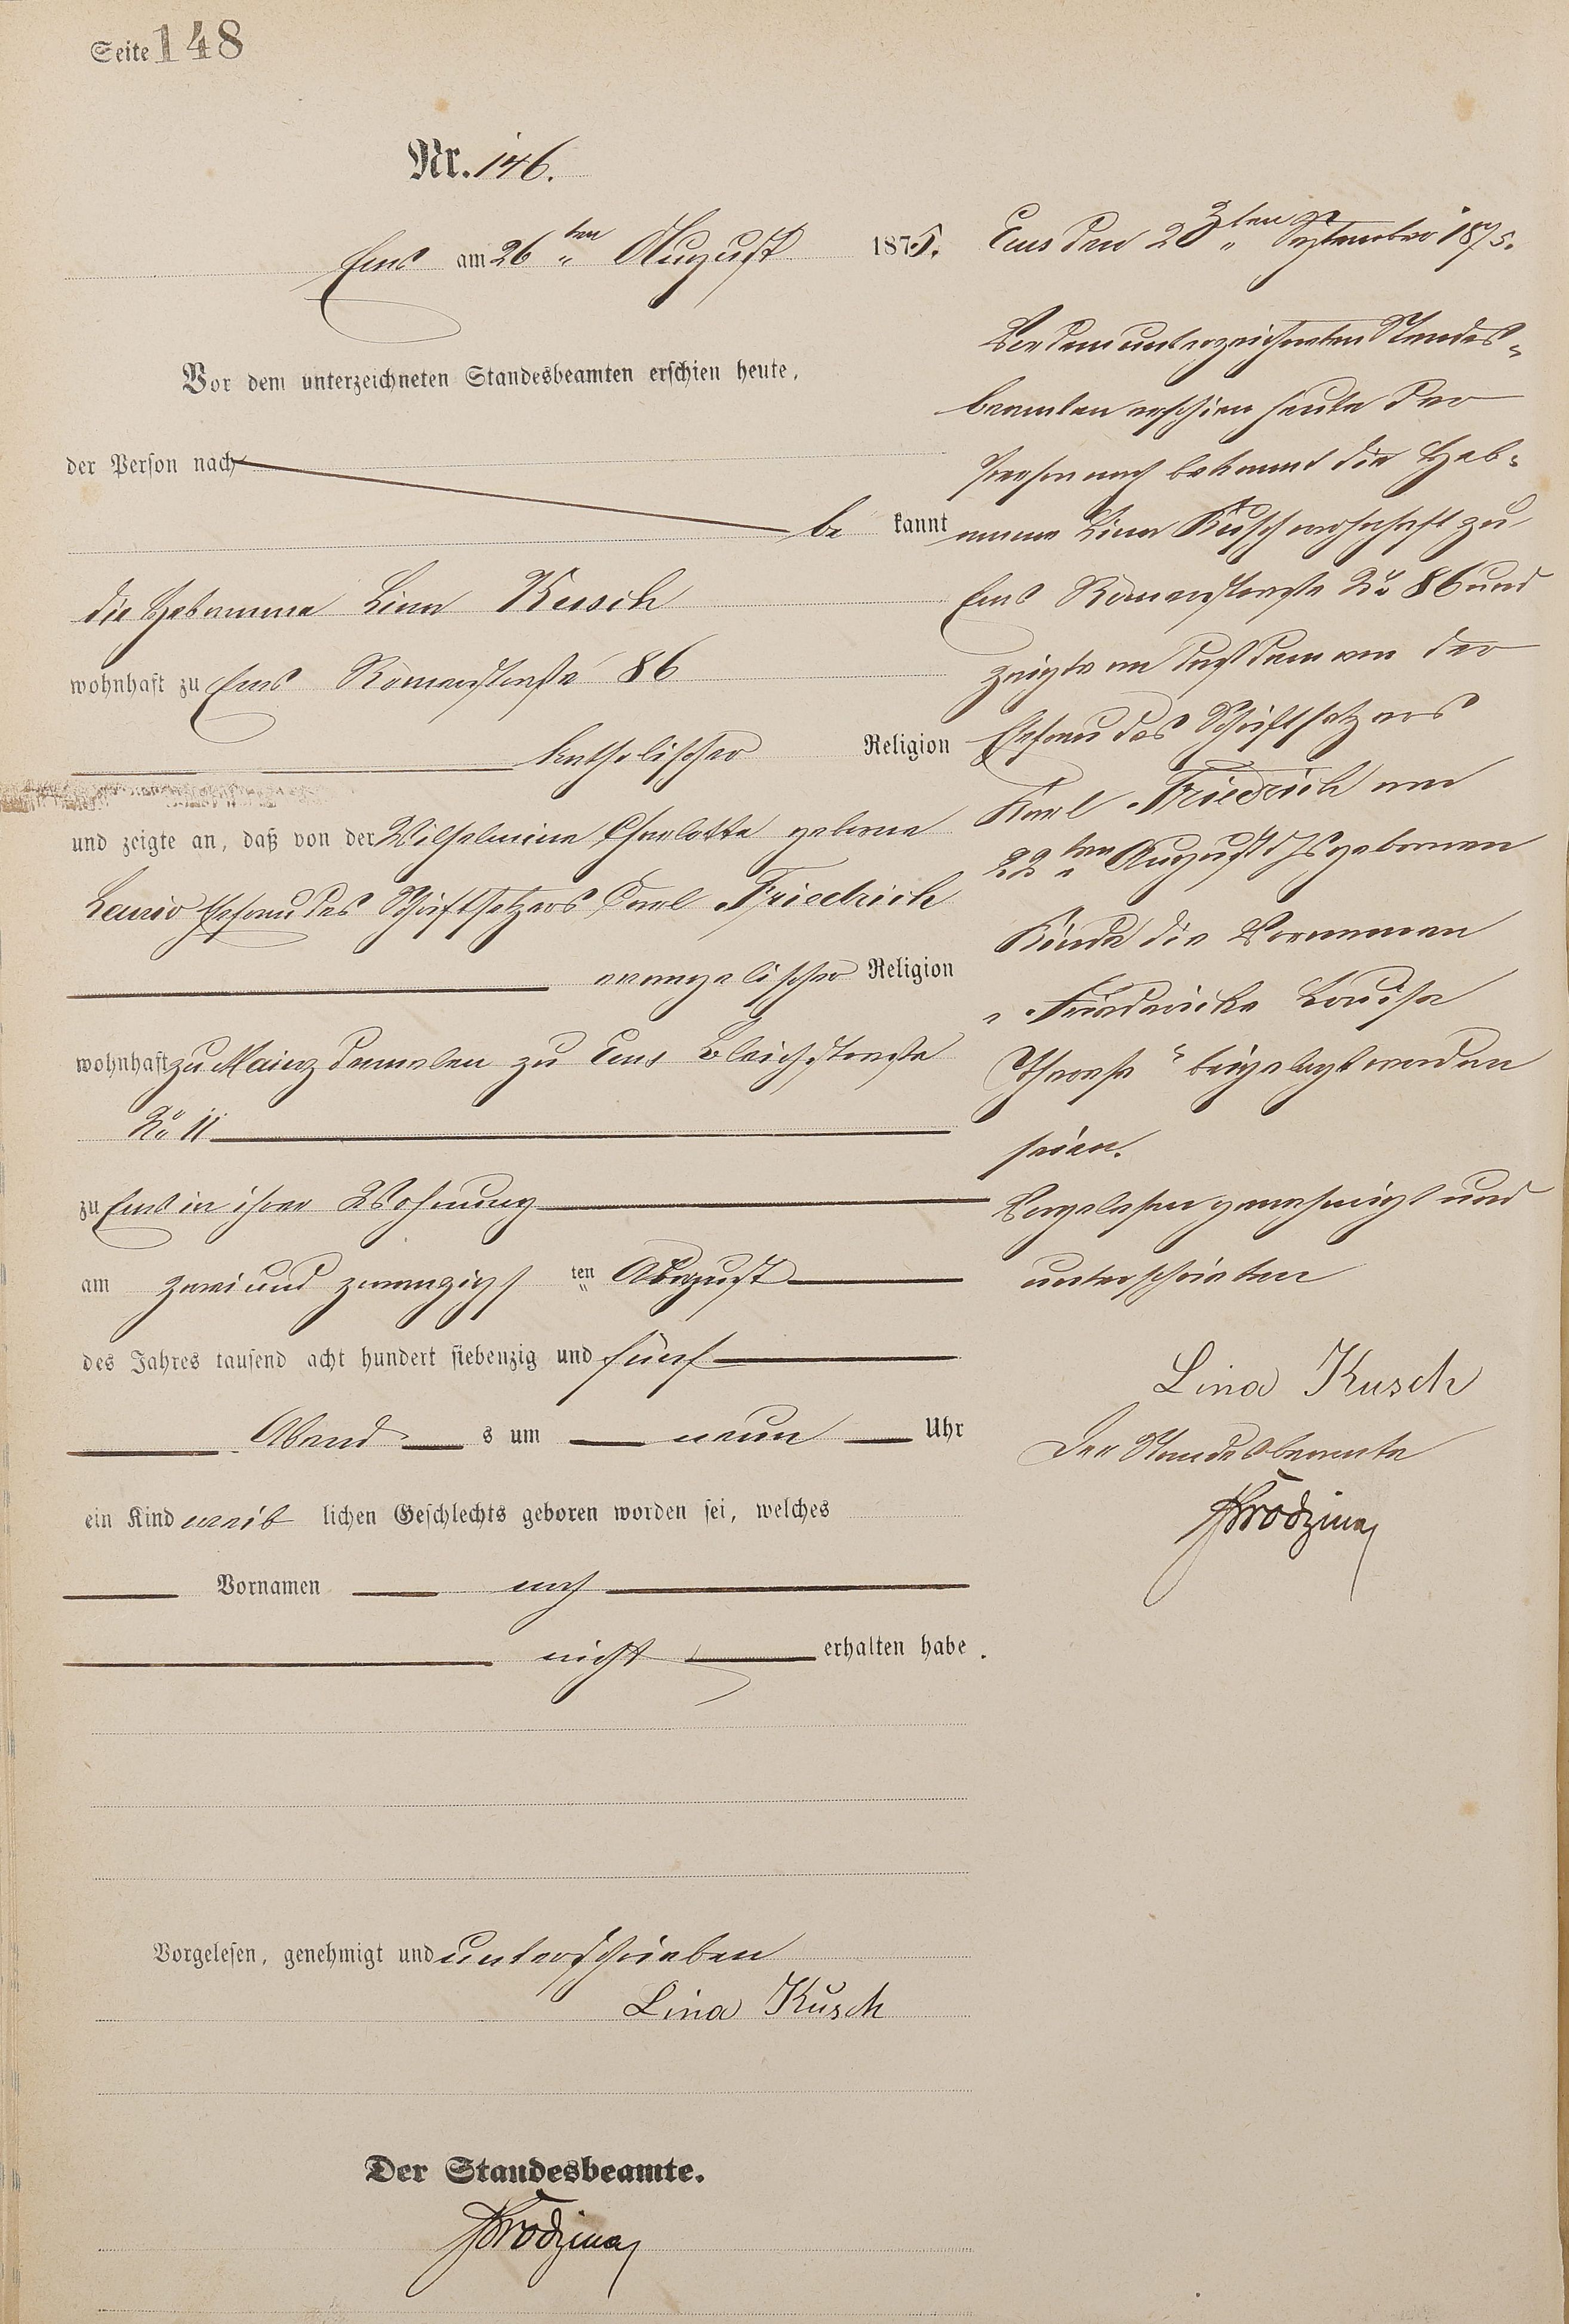 Seite 148
Nr. 146.
Ems am 26ten August 1875.
Vor dem unterzeichneten Standesbeamten erschien heute,
der Person nach
be kannt
die Hebamme Lina Kusch
wohnhaft zu Ems Römerstraße 86
katholischer Religion
und zeigte an, daß von der Wilhelmine Charlotte geborne
Ehefrau des Schriftsetzers Carl Friedrich
evangelischer Religion
wohnhaft zu Mainz dermalen zu Ems Bleichstraße
No 11
zu Ems in ihrer Wohnung
am zwei und zwanzigsten August
des Jahres tausend acht hundert siebenzig und fünf
Abends um neun Uhr
ein Kind weiblichen Geschlechts geboren worden sei, welches
Vornamen noch
nicht erhalten habe.
Vorgelesen, genehmigt und unterschrieben
Lina Kusch
Der Standesbeamte.
Ems den 23ten September 1875.
Vor dem unterzeichneten Standes-
beamten erschien heute der
Person nach bekannt die Heb-
amme Lina Kusch wohnhaft zu
Ems Römerstraße No 86 und
zeigte an daß dem von der
Ehefrau des Schriftsetzers
Karl Friedrich am
22ten August d Js gebornen
Kinde die Vornamen
„Friedericke Louise
Therese“ beigelegt worden
seien.
Vorgelesen genehmigt und
unterschrieben
Lina Kusch
Der Standesbeamte